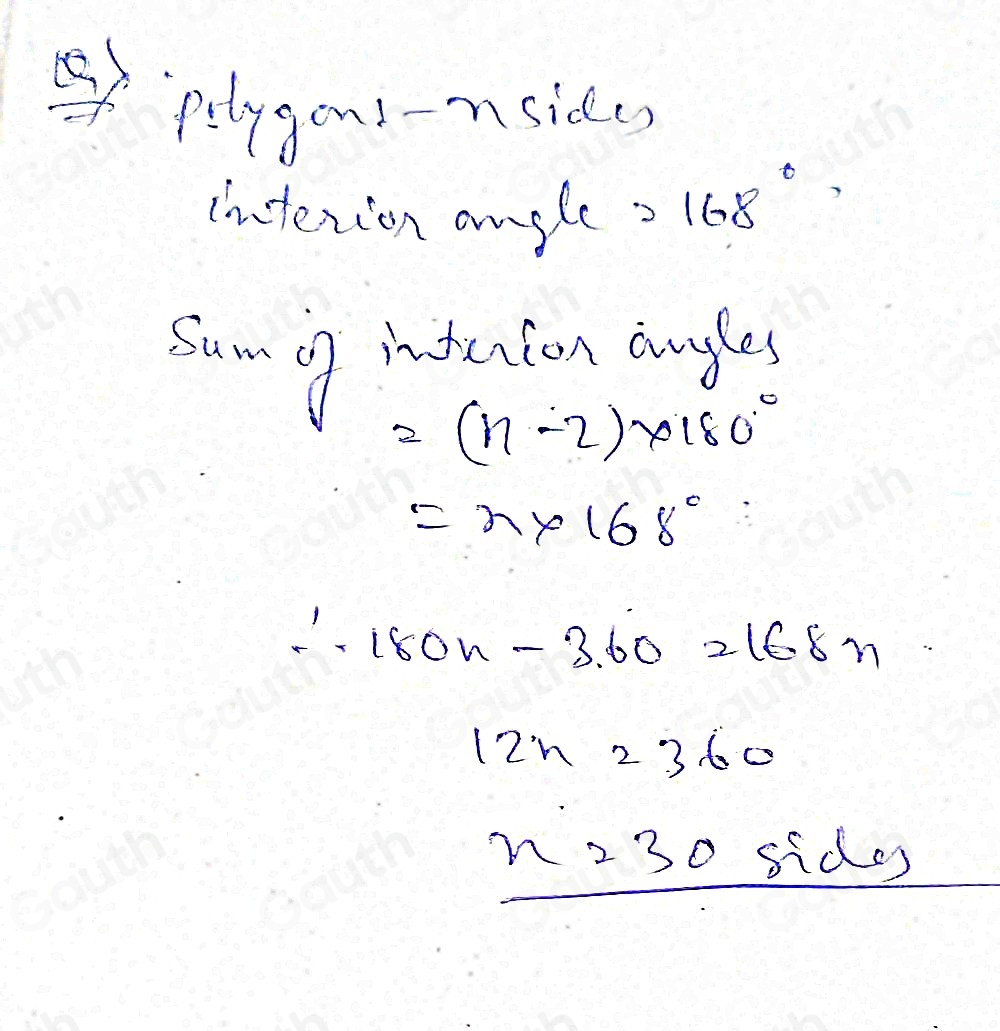 Q)
polygons - n sides
interior angle = 168°
Sum of interior angles
= (n - 2) × 180°
= n × 168°
∴ 180n - 360 = 168n
12n = 360
n = 30 sides